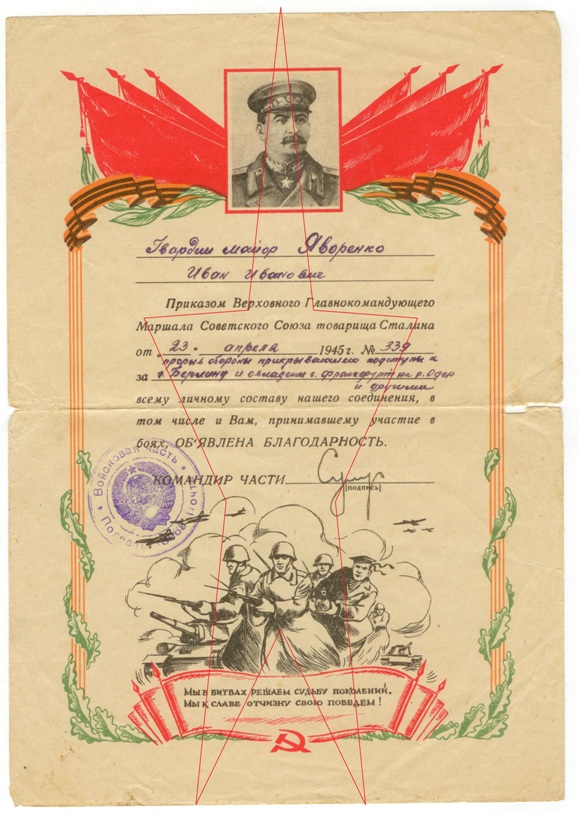 Гвардии майор Яворенко
Иван Иванович
Приказом Верховного Главнокомандующего
Маршала Советского Союза товарища Сталина
от 23. апреля 1945 г. № 339
прорыв обороны прикрывающего подступы к
за г. Берлину и овладении г. Франкфурт на р. Одер
и другими
всему личному составу нашего соединения, в
том числе и Вам, принимавшему участие в
боях, ОБ'ЯВЛЕНА БЛАГОДАРНОСТЬ.
КОМАНДИР ЧАСТИ
[подпись]
Войсковая часть
Полевая почта
МЫ В БИТВАХ РЕШАЕМ СУДЬБУ ПОКОЛЕНИЙ,
МЫ К СЛАВЕ ОТЧИЗНУ СВОЮ ПОВЕДЕМ!